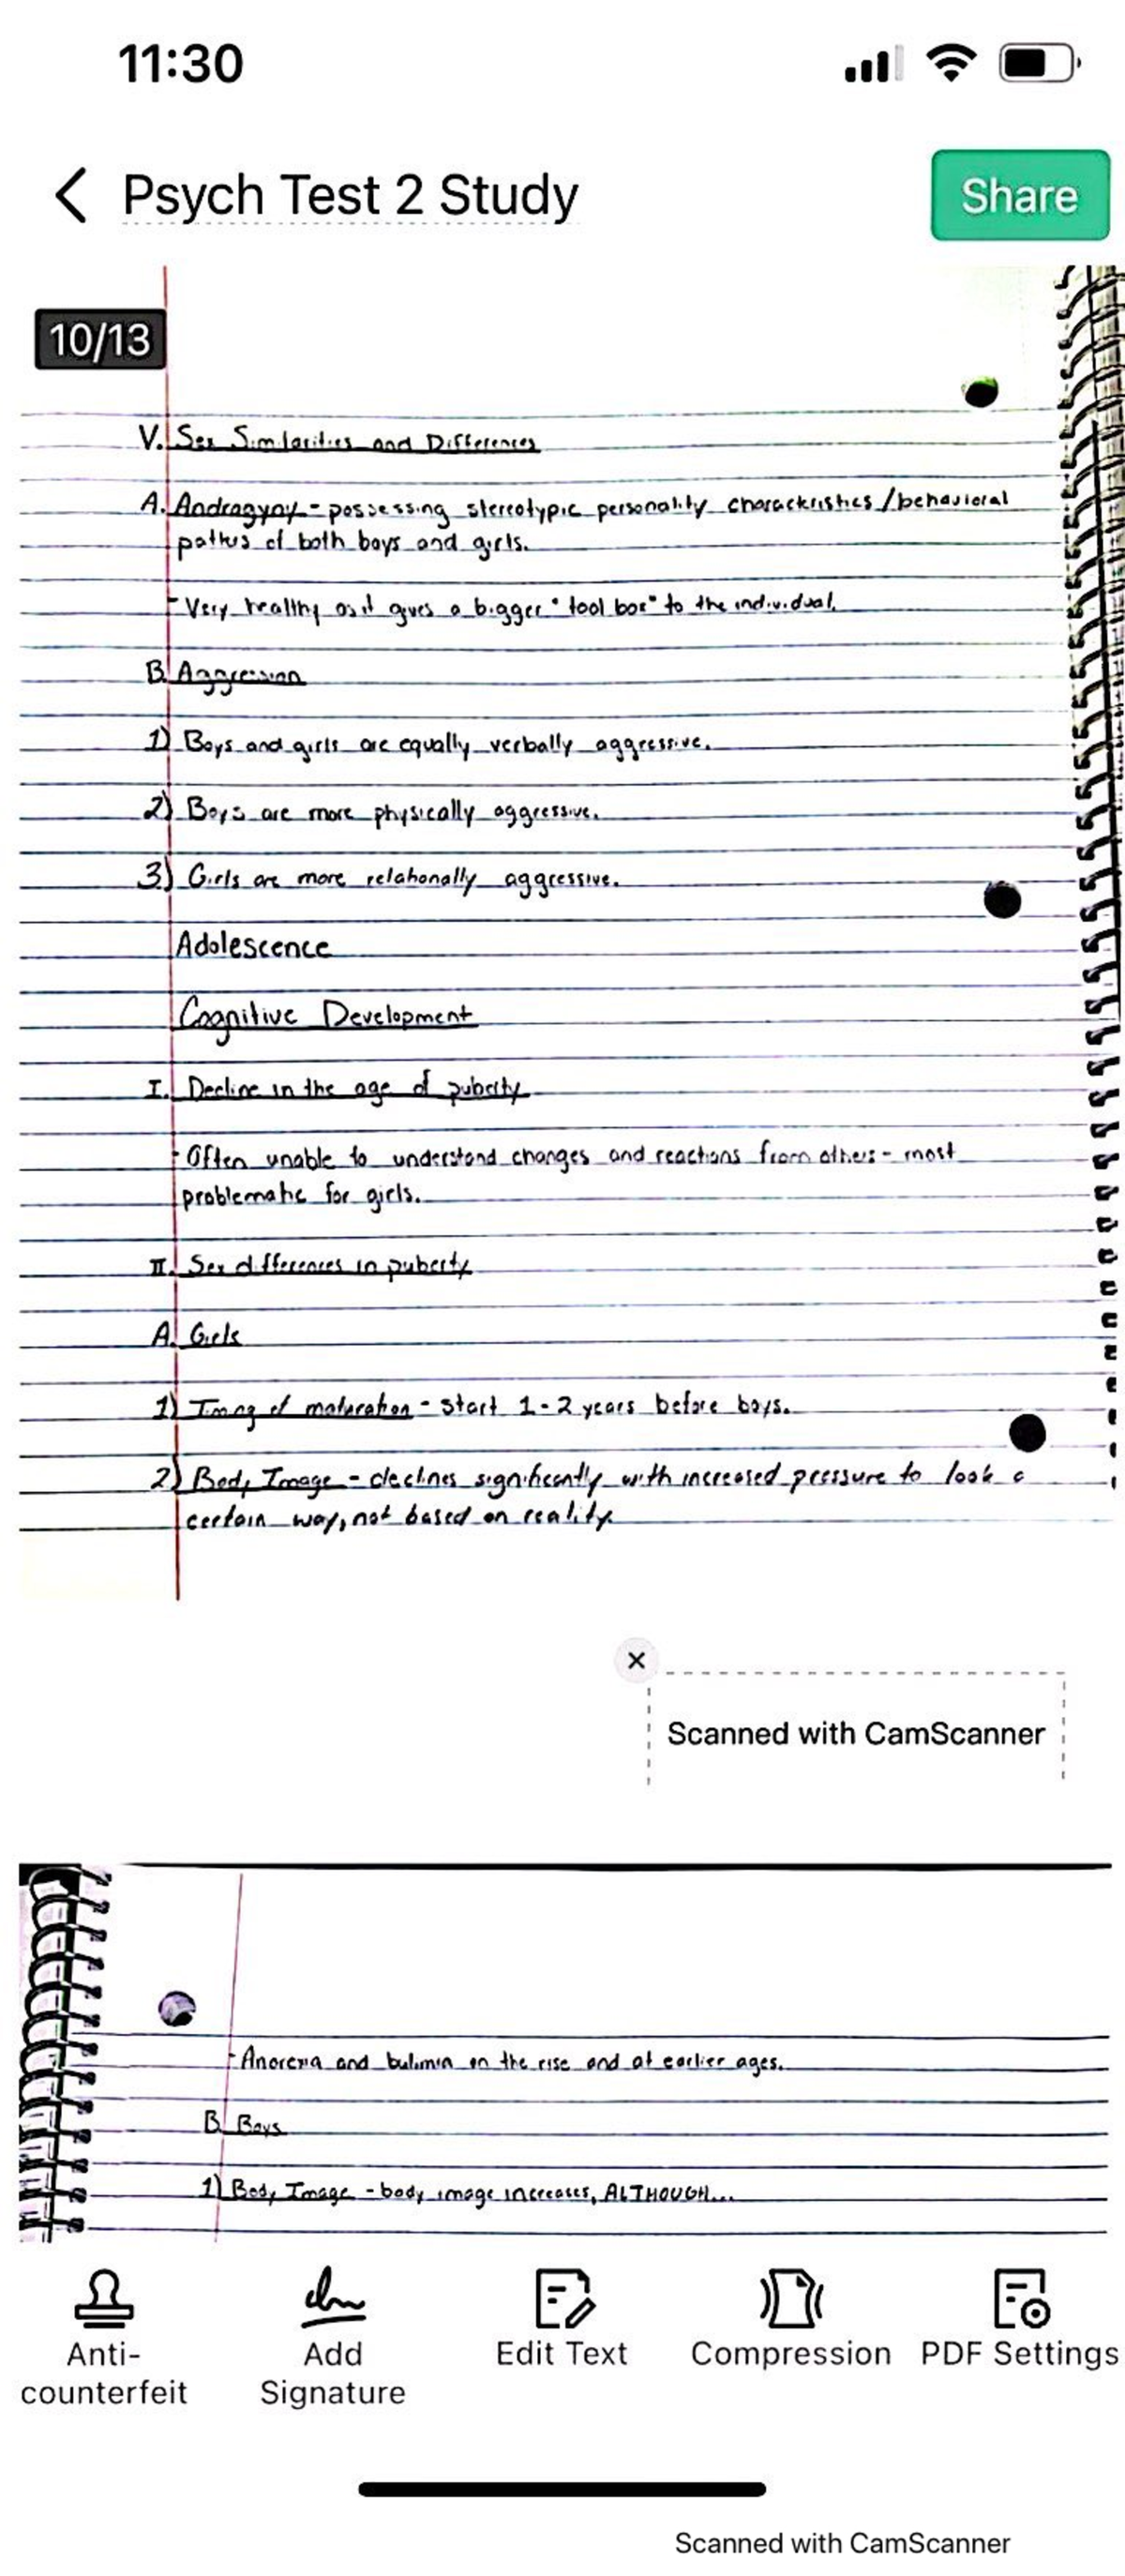 11:30
Psych Test 2 Study
Share
10/13
V. Sex Similarities and Differences
A. Androgyny - possessing stereotypic personality characteristics / behavioral
of both boys and girls.
- Very healthy as it gives a bigger "tool box" to the individual.
B. Aggression
1) Boys and girls are equally verbally aggressive.
2) Boys are more physically aggressive.
3) Girls are more relationally aggressive.
Adolescence
Cognitive Development
I. Decline in the age of puberty
- Often unable to understand changes and reactions from others - most
problematic for girls.
II. Sex differences in puberty
A. Girls
1) Timing of maturation - start 1-2 years before boys.
2) Body Image - declines significantly with increased pressure to look a
certain way, not based on reality.
Scanned with CamScanner
- Anorexia and bulimia on the rise and at earlier ages.
B. Boys
1) Body Image - body image increases, ALTHOUGH...
Anti-
counterfeit
Add
Signature
Edit Text
Compression
PDF Settings
Scanned with CamScanner